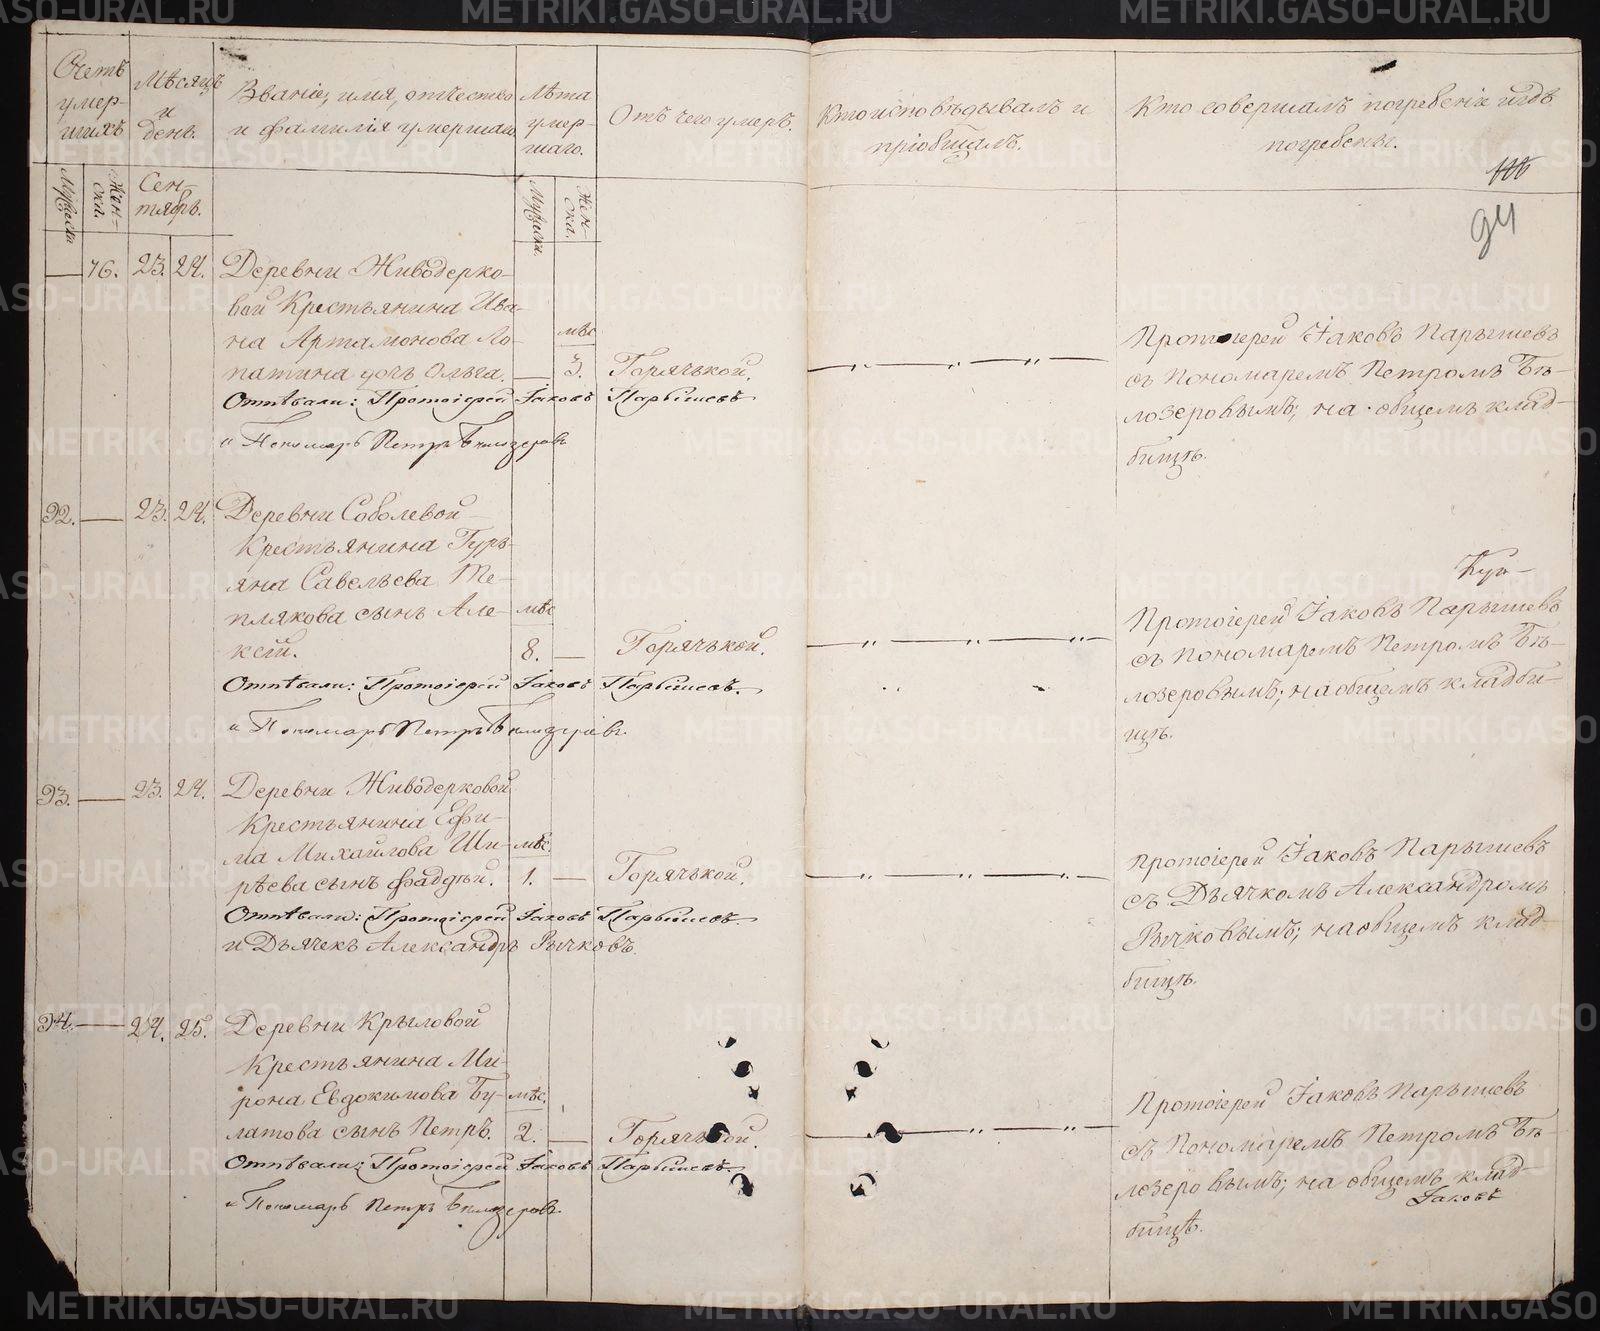 Счетъ умер-шихъ
Мѣсяцъ и день.
Званіе, имя, отчество и фамилія умершаго
Лѣта умер-шаго.
Отъ чего умеръ.
Кто исповѣдывалъ и пріобщалъ.
Кто совершалъ погребеніе и гдѣ погребены.
Мужска
Жен-ска.
Сен-тябрь.
Мужска.
Жен-ска.
94
76. 23. 24. Деревни Живодерко-
вой Крестьянина Ива-
на Артамонова Ло-
патина дочь Ольга. мѣс 3. Горячькой.
Отпѣвали: Протоіерей Іаковъ Парышевъ
и Пономарь Петръ Бѣлозеровъ
Протоіерей Іаковъ Парышевъ
съ Пономаремъ Петромъ Бѣ-
лозеровымъ; на общемъ клад-
бищѣ.
92. 23. 24. Деревни Соболевой
Крестьянина Гурь-
яна Савельева Те-
плякова сынъ Але-
ксій. мѣс 8. Горячькой.
Отпѣвали: Протоіерей Іаковъ Парышевъ.
и Пономарь Петръ Бѣлозеровъ.
Протоіерей Іаковъ Парышевъ
съ Пономаремъ Петромъ Бѣ-
лозеровымъ; на общемъ кладби-
щѣ.
93. 23. 24. Деревни Живодерковой
Крестьянина Ефи-
ма Михайлова Ши-
рѣева сынъ Фаддѣй. мѣс. 1. Горячькой.
Отпѣвали: Протоіерей Іаковъ Парышевъ.
и Дьячекъ Александръ Рычковъ.
Протоіерей Іаковъ Парышевъ
съ Дьячкомъ Александромъ
Рычковымъ; на общемъ клад-
бищѣ.
94. 24. 25. Деревни Крыловой
Крестьянина Ми-
рона Евдокимова Бу-
латова сынъ Петръ. мѣс. 2. Горячькой.
Отпѣвали: Протоіерей Іаковъ Парышевъ.
и Пономарь Петръ Бѣлозеровъ.
Протоіерей Іаковъ Парышевъ
съ Пономаремъ Петромъ Бѣ-
лозеровымъ; на общемъ клад-
бищѣ.
Іаковъ
METRIKI.GASO-URAL.RU